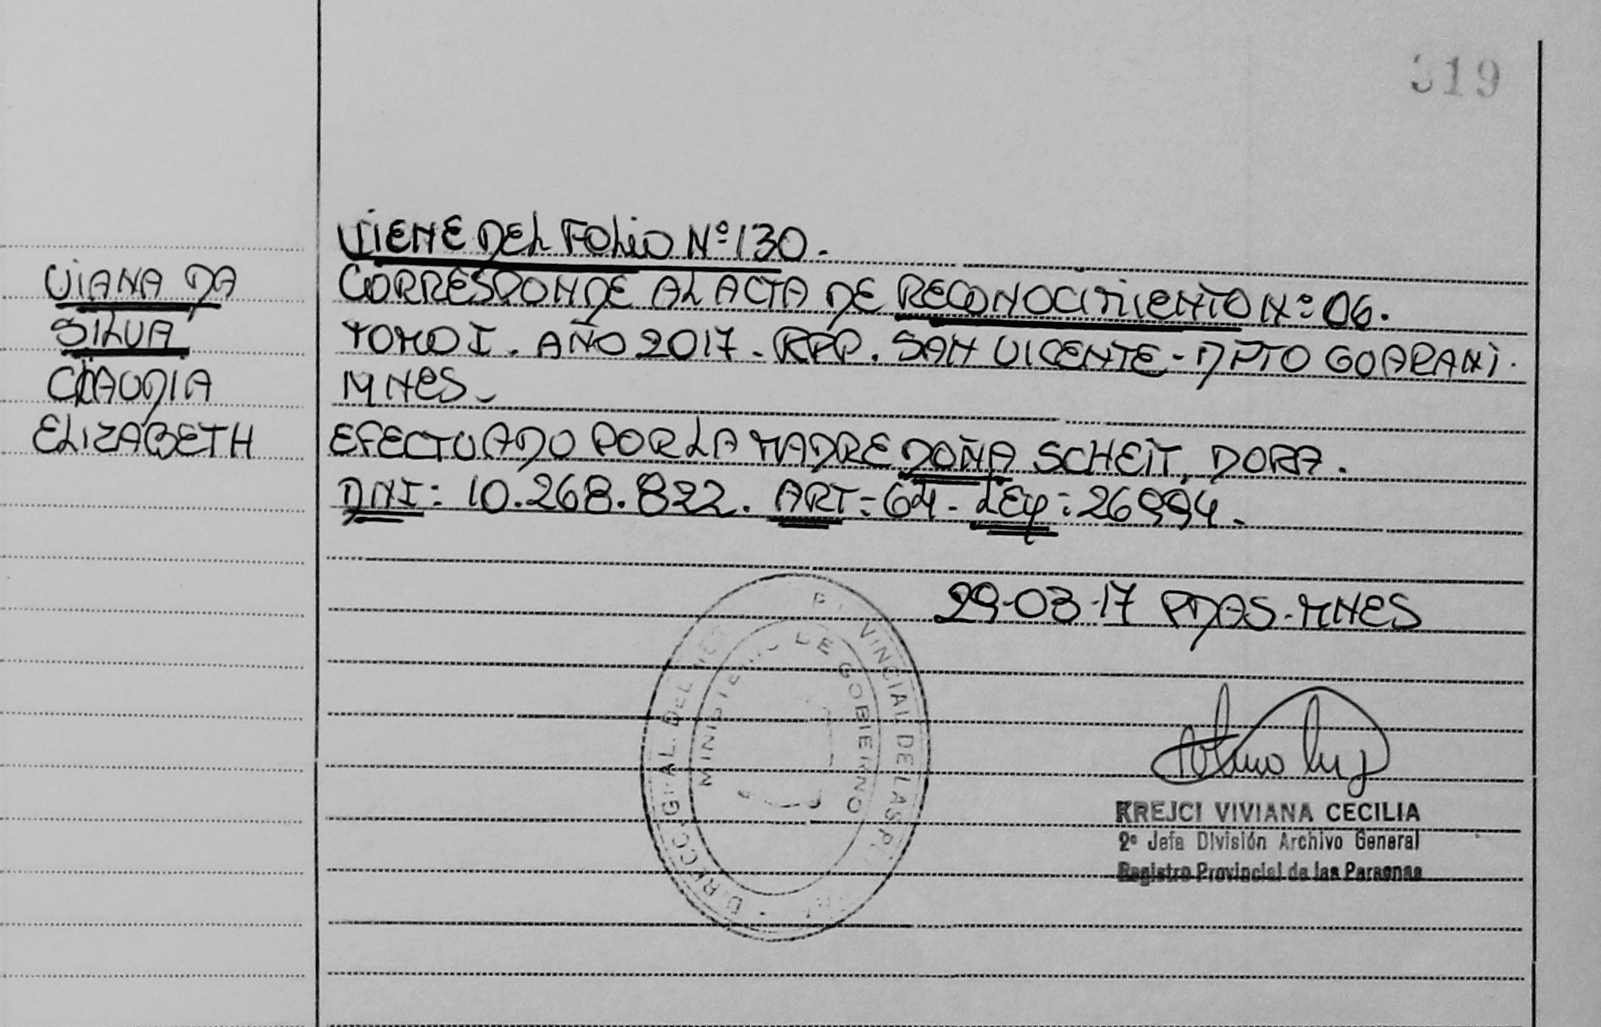 319
VIANA DA
SILVA
CLAUDIA
ELIZABETH
VIENE DEL FOLIO Nº 130.
CORRESPONDE AL ACTA DE RECONOCIMIENTO Nº: 06.
TOMO I. AÑO 2017. RPP. SAN VICENTE - DPTO GUARANI.
MNES.
EFECTUADO POR LA MADRE DOÑA SCHEIT, DORA.
DNI: 10.268.822. ART: 64. LEY: 26994.
29-03-17 PDAS-MNES
MINISTERIO DE GOBIERNO
KREJCI VIVIANA CECILIA
2º Jefa División Archivo General
Registro Provincial de las Personas